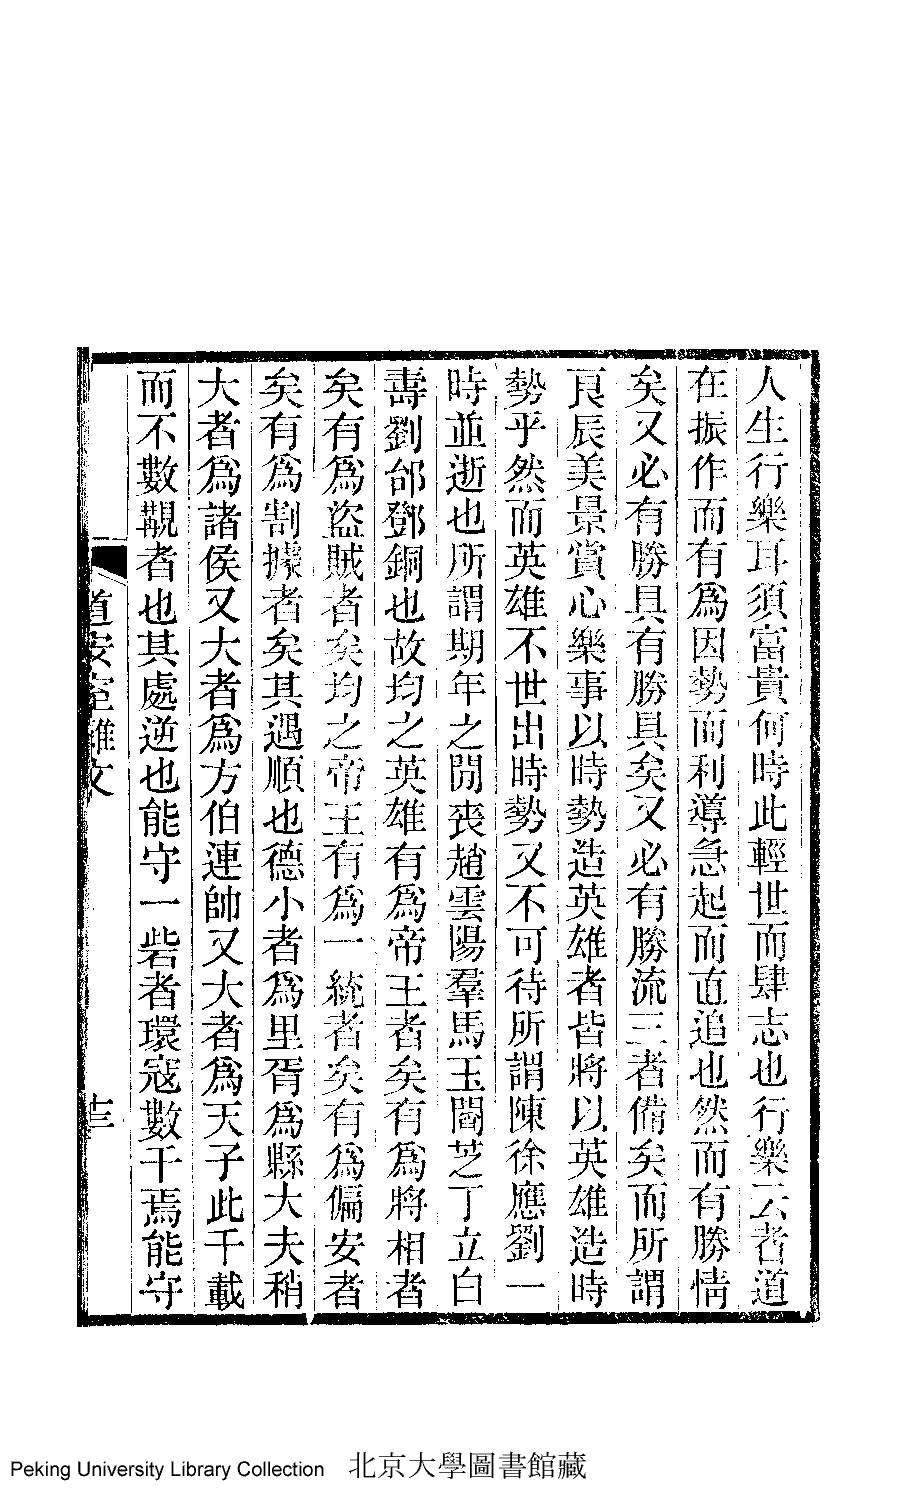 人生行樂耳須富貴何時此輕世而肆志也行樂云者道
在振作而有爲因勢而利導急起而直追也然而有勝情
矣又必有勝具有勝具矣又必有勝流三者備矣而所謂
良辰美景賞心樂事以時勢造英雄者皆將以英雄造時
勢乎然而英雄不世出時勢又不可待所謂陳徐應劉一
時並逝也所謂期年之閒喪趙雲陽羣馬玉閻芝丁立白
壽劉郃鄧銅也故均之英雄有爲帝王者矣有爲將相者
矣有爲盜賊者矣均之帝王有爲一統者矣有爲偏安者
矣有爲割據者矣其遇順也德小者爲里胥爲縣大夫稍
大者爲諸侯又大者爲方伯連帥又大者爲天子此千載
而不數覯者也其處逆也能守一砦者環寇數千焉能守
道安室雜文
十三
Peking University Library Collection 北京大學圖書館藏